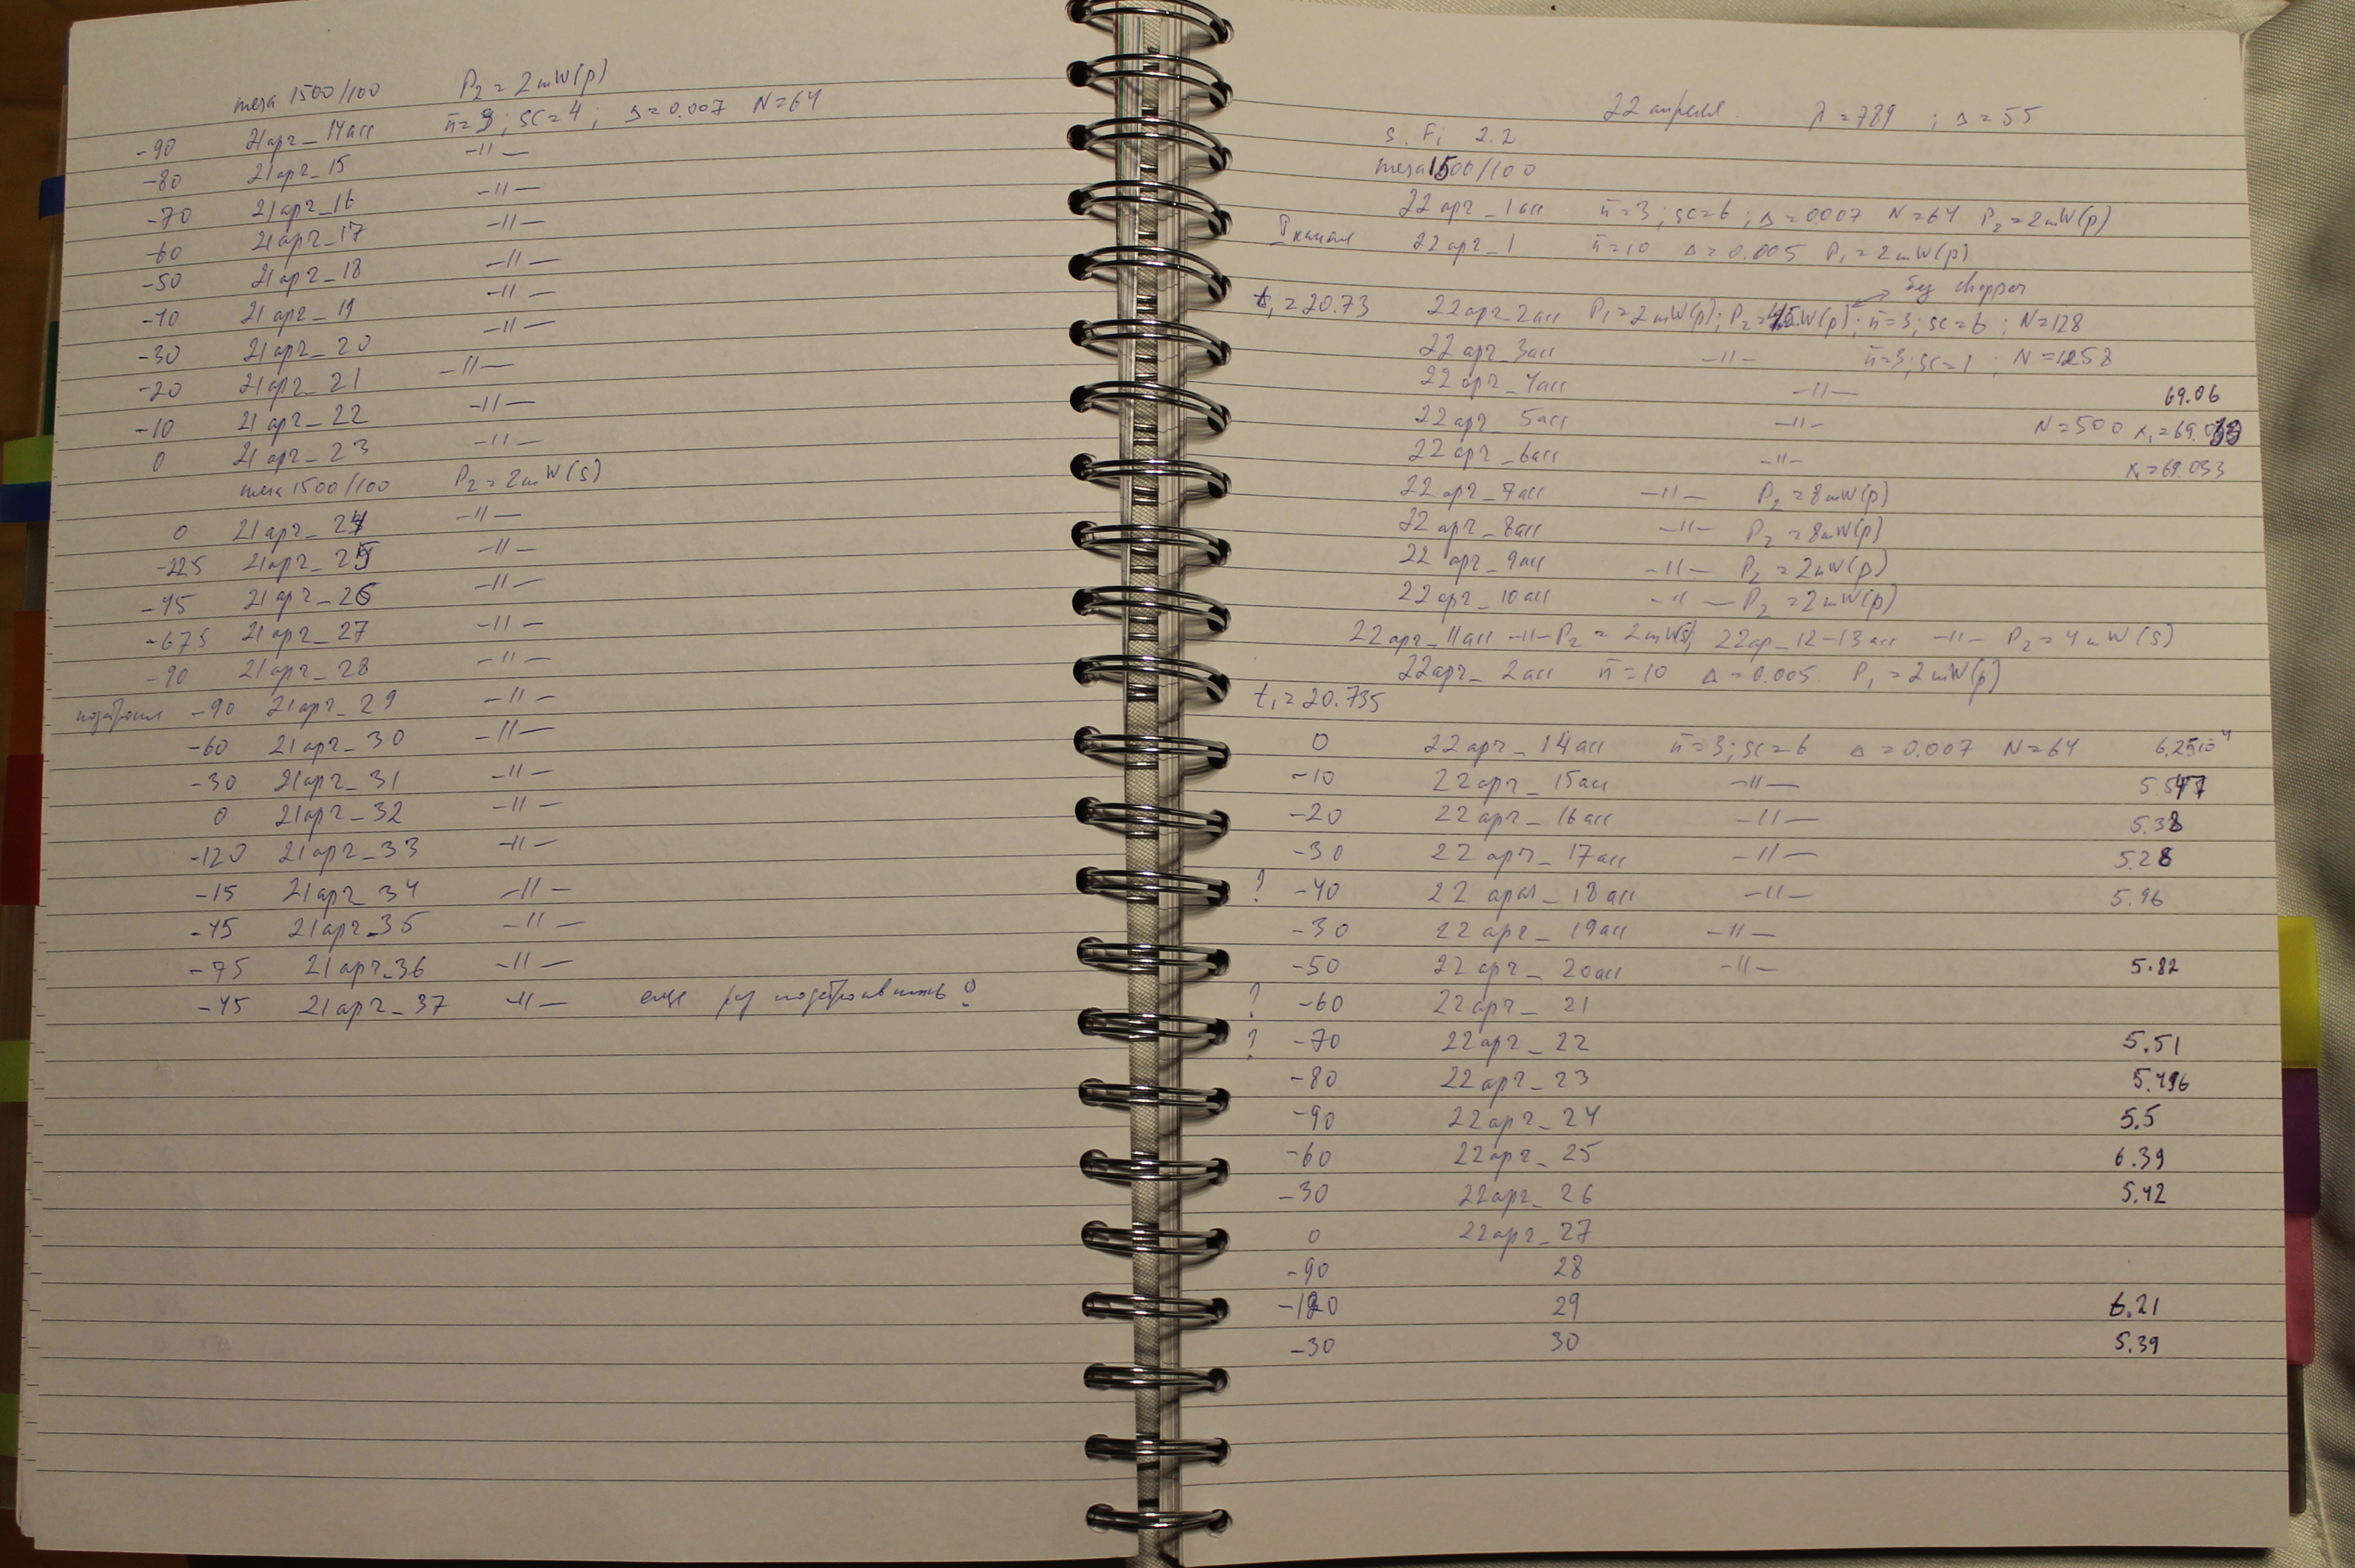 меза 1500/100 P₂ = 2mW(p)
-90 21apr_14acc n̄=3; sc=4; Δ=0.007 N=64
-80 21apr_15 -11-
-70 21apr_16 -11-
-60 21apr_17 -11-
-50 21apr_18 -11-
-40 21apr_19 -11-
-30 21apr_20 -11-
-20 21apr_21 -11-
-10 21apr_22 -11-
0 21apr_23 -11-
меза 1500/100 P₂ = 2mW(s)
0 21apr_24 -11-
-225 21apr_25 -11-
-45 21apr_26 -11-
-675 21apr_27 -11-
-90 21apr_28 -11-
-90 21apr_29 -11-
-60 21apr_30 -11-
-30 21apr_31 -11-
0 21apr_32 -11-
-120 21apr_33 -11-
-15 21apr_34 -11-
-45 21apr_35 -11-
-75 21apr_36 -11-
-45 21apr_37 -11- еще раз подстроить?
22 апреля λ=789 ; Δ=55
s. Fi 2.2
меза 1500/100
22apr_1acc n̄=3; sc=6; Δ=0.007 N=64 P₂=2mW(p)
I канал 22apr_1 n̄=10 Δ=0.005 P₁=2mW(p)
без chopper
t₁=20.73 22apr_2acc P₁=2mW(p); P₂= mW(p); n̄=3; sc=6; N=128
22apr_3acc -11- n̄=3; sc=1; N=1258
22apr_4acc -11- 69.06
22apr_5acc -11- N=500
22apr_6acc -11- x₁=69.033
22apr_7acc -11- P₂=8mW(p)
22apr_8acc -11- P₂=8mW(p)
22apr_9acc -11- P₂=2mW(p)
22apr_10acc -11- P₂=2mW(p)
22apr_11acc -11- P₂=2mW(s); 22ap_12-13acc -11- P₂=4mW(s)
22apr_2acc n̄=10 Δ=0.005 P₁=2mW(p)
t₁=20.735
0 22apr_14acc n̄=3; sc=6 Δ=0.007 N=64 6.25·10⁻⁴
-10 22apr_15acc -11-
-20 22apr_16acc -11- 5.38
-30 22apr_17acc -11- 5.28
? -40 22apr_18acc -11- 5.96
-30 22apr_19acc -11-
-50 22apr_20acc -11- 5.82
? -60 22apr_21
? -70 22apr_22 5.51
-80 22apr_23 5.496
-90 22apr_24 5.5
-60 22apr_25 6.39
-30 22apr_26 5.42
0 22apr_27
-90 28
-120 29 6.21
-30 30 5.39